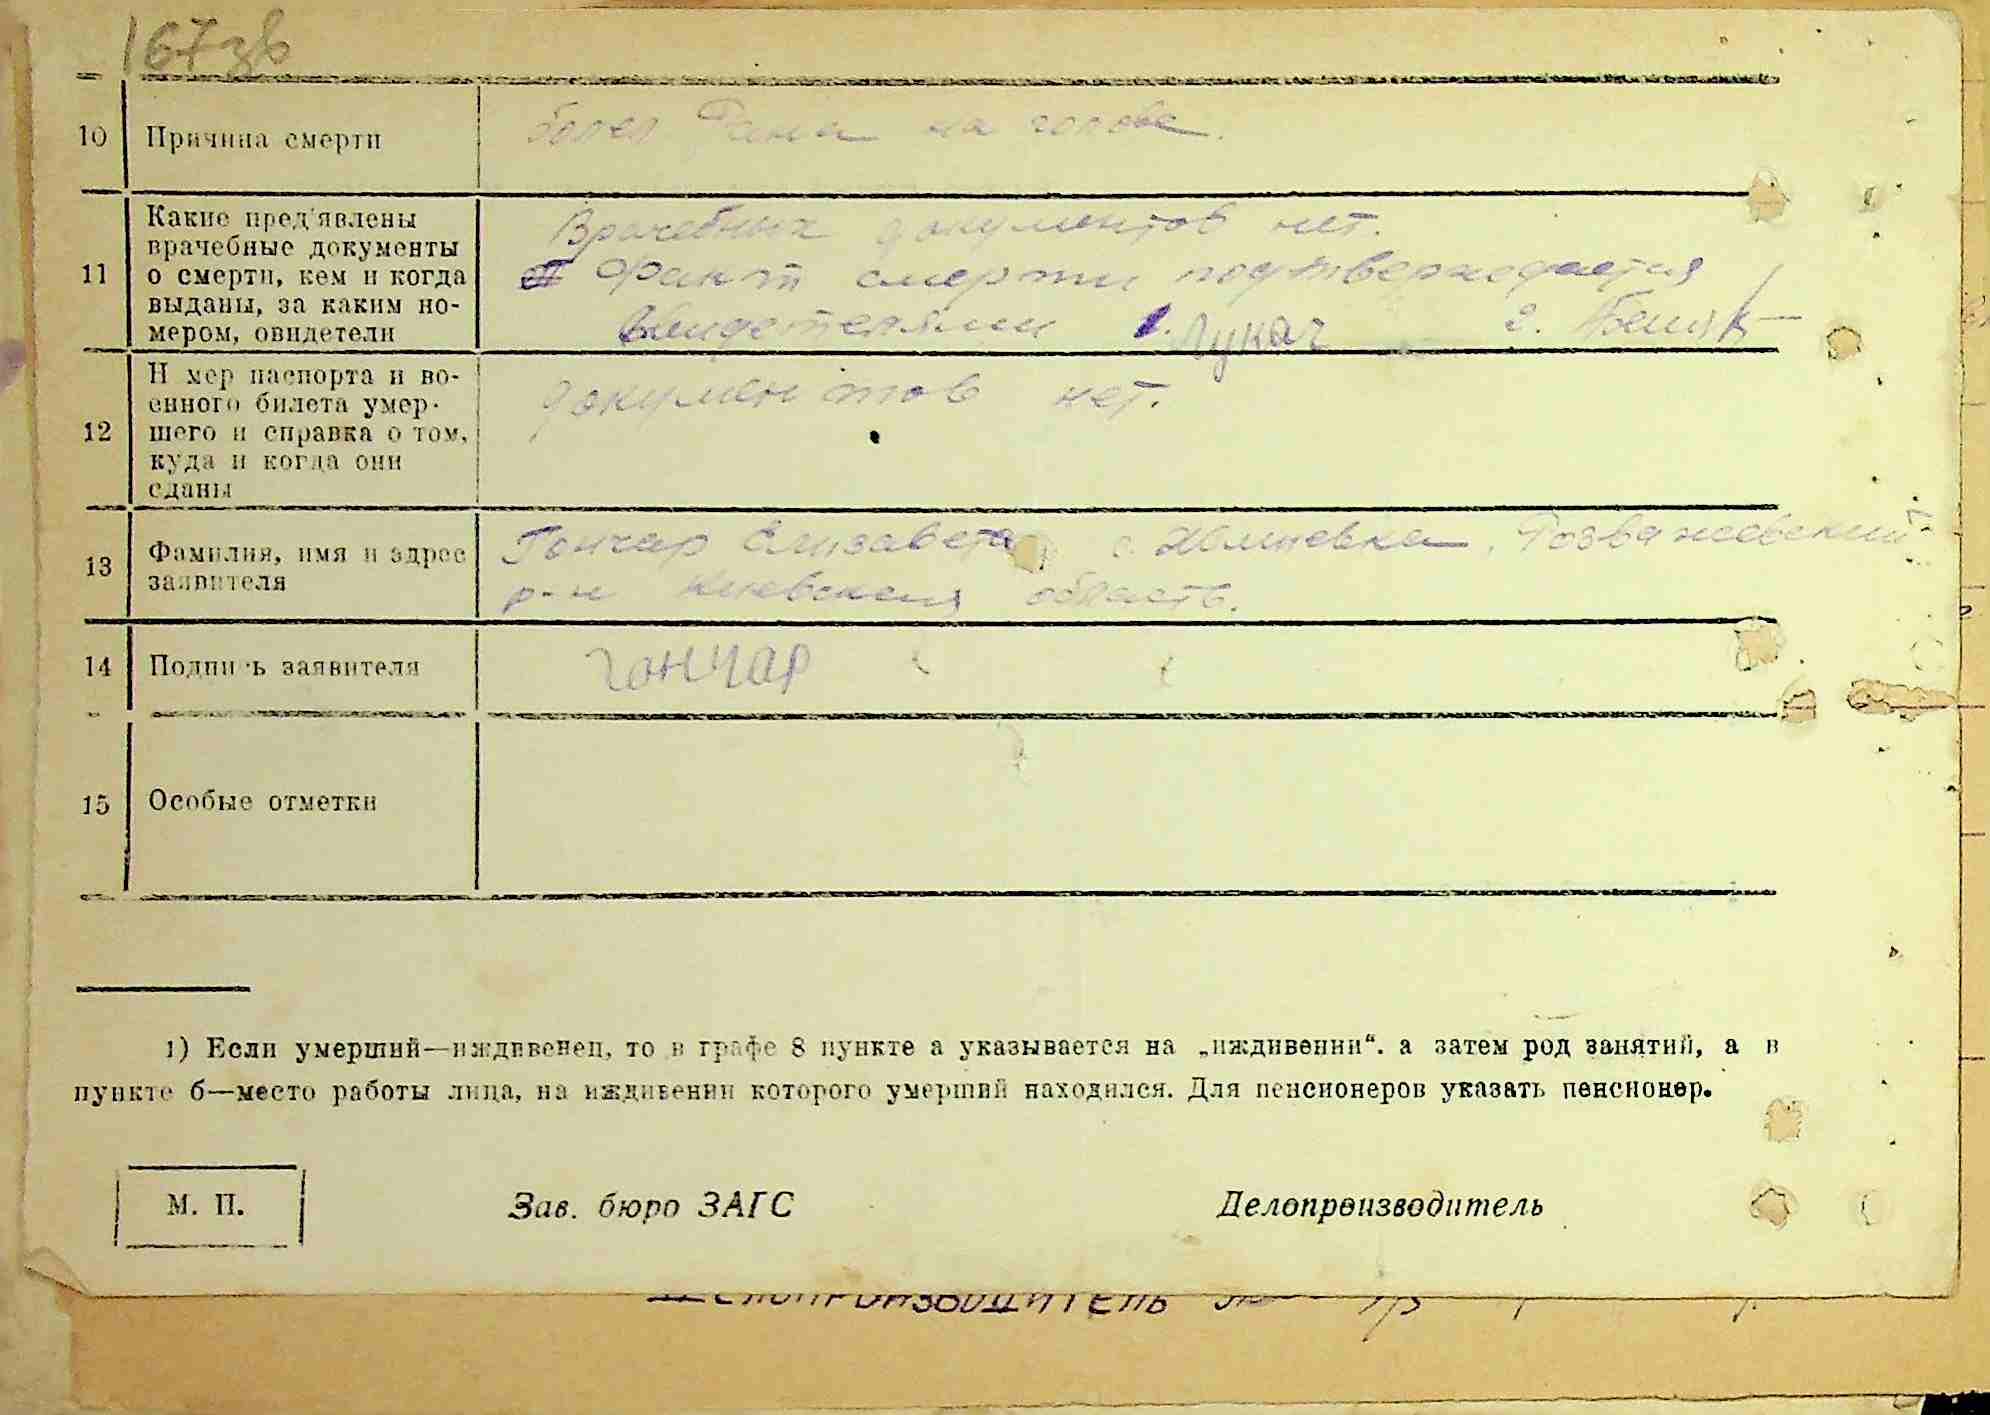 167зв
10 Причина смерти
болел Рана на голове.
11 Какие пред'явлены
врачебные документы
о смерти, кем и когда
выданы, за каким но-
мером, овидетели
Врачебных документов нет.
Факт смерти подтверждается
свидетелями 1. Лукач 2.
12 Н мер паспорта и во-
енного билета умер-
шего и справка о том,
куда и когда они
сданы
документов нет.
13 Фамилия, имя и адрес
заявителя
Гончар Елизавета с. Жмиевка, Розважевский
р-н Киевская область.
14 Подпи ь заявителя
гончар
15 Особые отметки
1) Если умерший—иждивенец, то в графе 8 пункте а указывается на „иждивении“. а затем род занятий, а в
пункте б—место работы лица, на иждивении которого умерший находился. Для пенсионеров указать пенсионер.
М. П. Зав. бюро ЗАГС Делопроизводитель